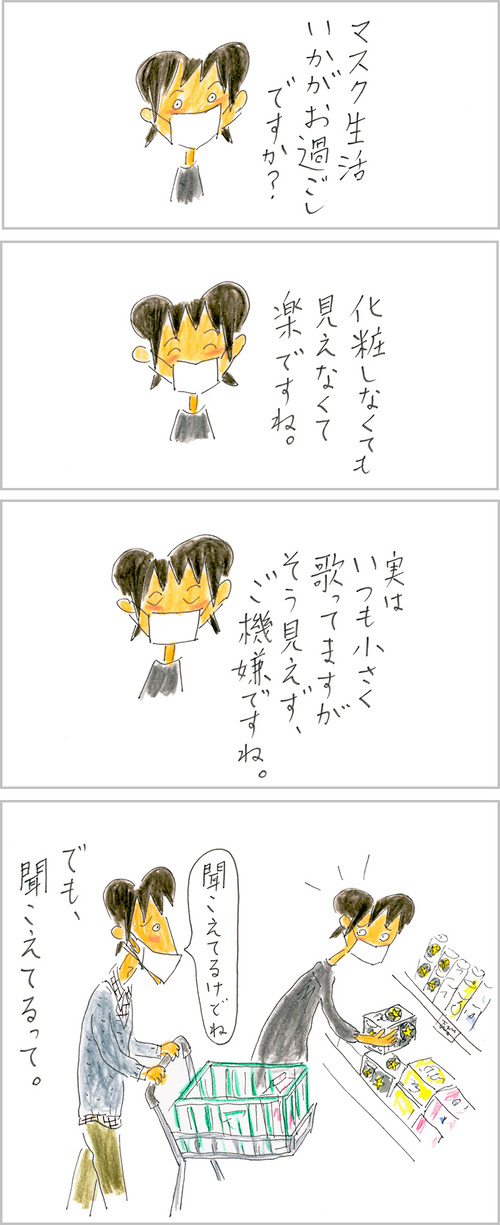 マスク生活
いかがお過ごし
ですか？
化粧しなくても
見えなくて
楽ですね。
実は
いつも小さく
歌ってますが
そう見えず、
ご機嫌ですね。
聞こえてるけどね
でも、
聞こえてるって。